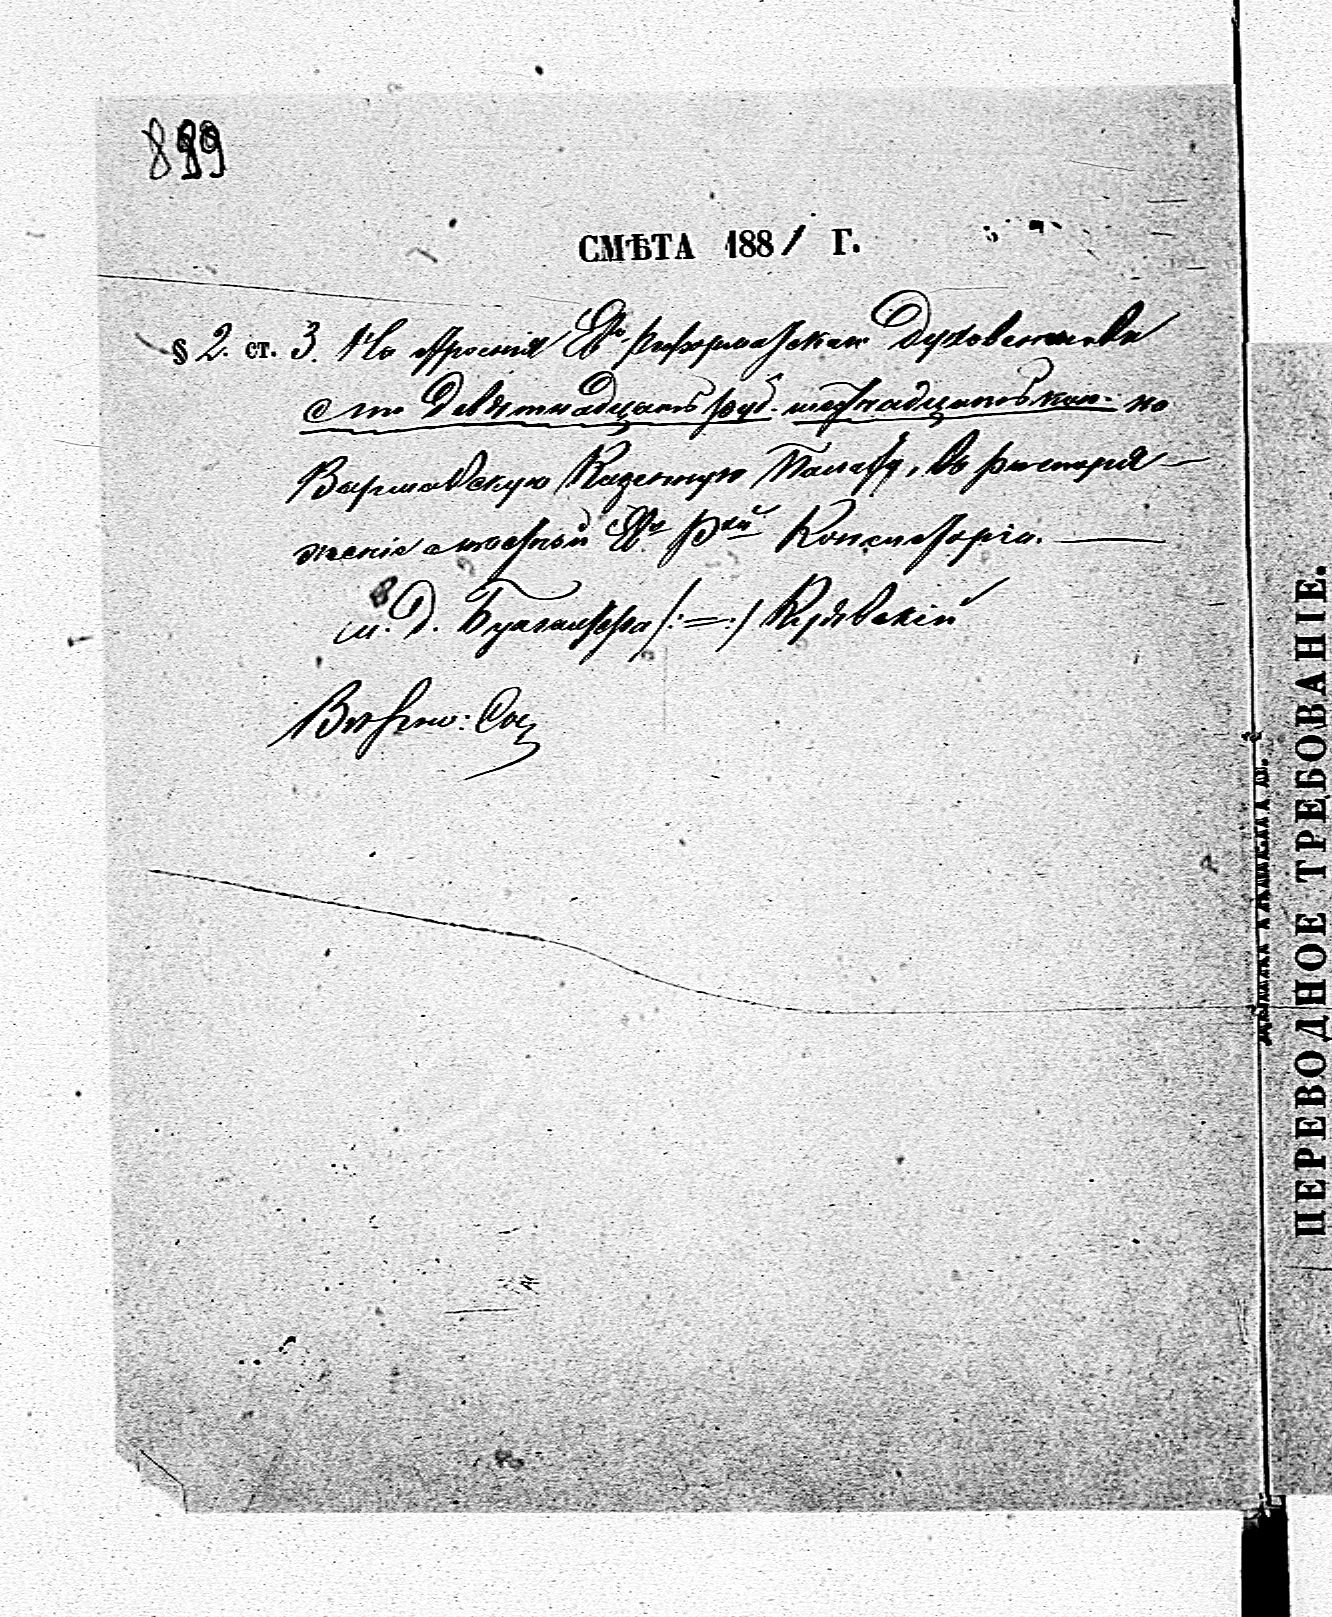 899
СМѢТА 1881 Г.
§ 2. ст. 3. На Ев. реформатскаго Духовенства
сто девятнадцать руб. шестнадцать коп. на
Варшавскую Казенную Палату, въ распоря-
женіе мѣстной Ев. Р-кой Консисторіи.
И. Д. Бухгалтера /:—:/ Куявскій
ПЕРЕВОДНОЕ ТРЕБОВАНІЕ.